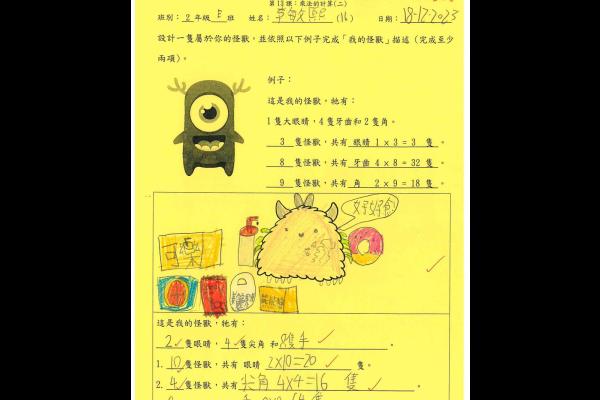 第13課：乘法的計算(二)
班別：2年級E班 姓名： (16) 日期：18-12-2023
設計一隻屬於你的怪獸，並依照以下例子完成「我的怪獸」描述 (完成至少
兩項)。
例子：
這是我的怪獸，牠有：
1隻大眼睛，4隻牙齒和2隻角。
3 隻怪獸，共有 眼睛 1 x 3 = 3 隻。
8 隻怪獸，共有 牙齒 4 x 8 = 32 隻。
9 隻怪獸，共有 角 2 x 9 = 18 隻。
好
可樂
這是我的怪獸，牠有：
2隻眼睛，4隻尖角 和8隻手。
1. 10隻怪獸，共有 眼睛 2x10=20 隻。
2. 4隻怪獸，共有 尖角 4x4=16 隻。